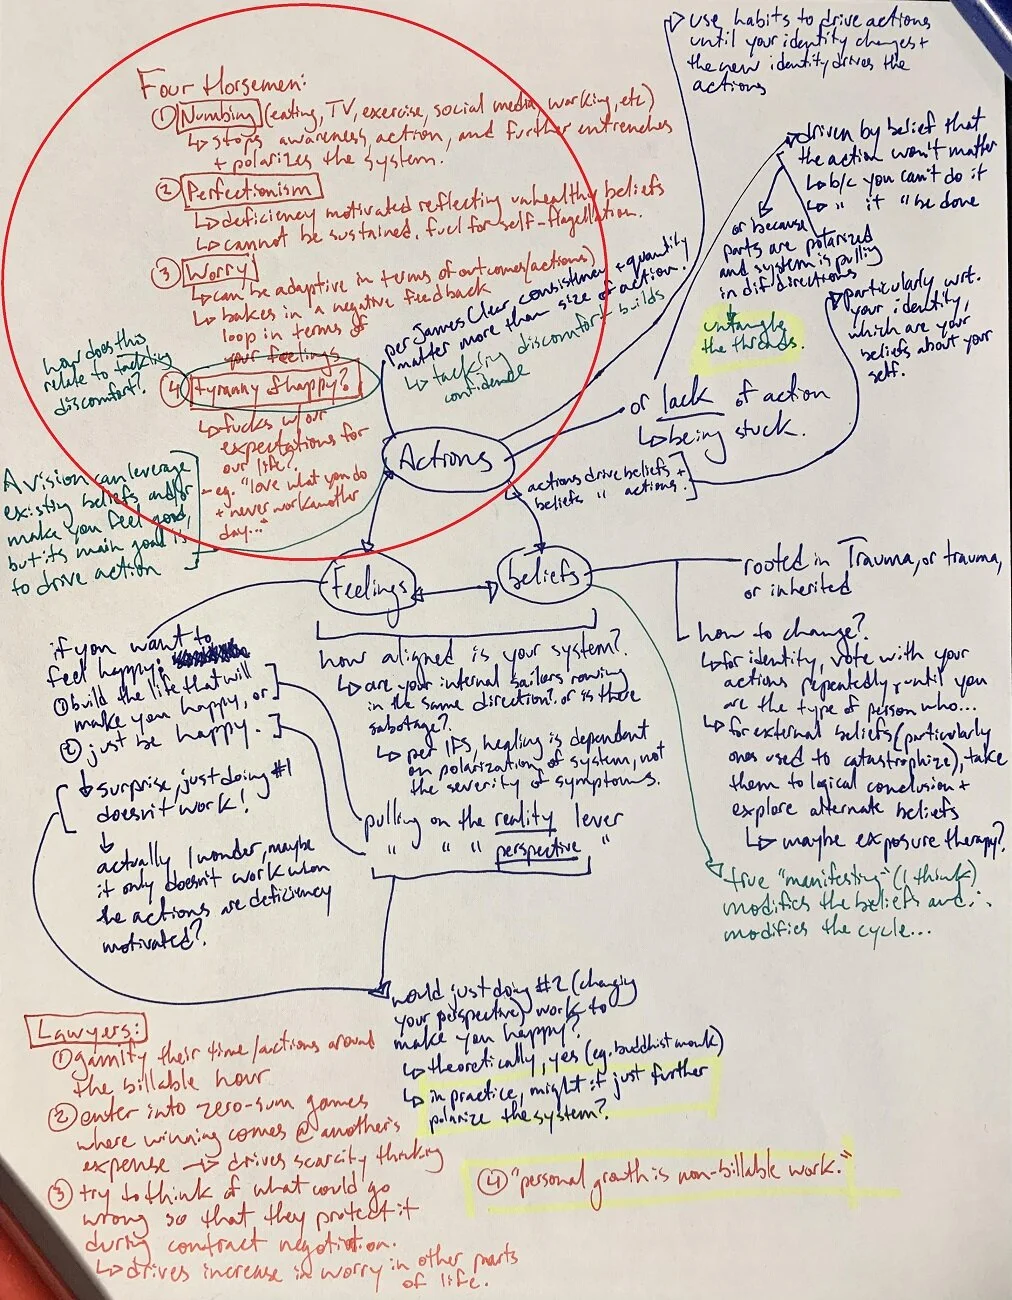 use habits to drive actions
until your identity changes +
the new identity drives the
actions
Four Horsemen:
① Numbing (eating, TV, exercise, social media, working, etc)
↳ stops awareness, action, and further entrenches
+ polarizes the system.
② Perfectionism
↳ deficiency motivated reflecting unhealthy beliefs
↳ cannot be sustained. fuel for self-flagellation.
③ Worry
↳ can be adaptive in terms of outcomes/actions)
↳ bakes in a negative feedback
loop in terms of
your feelings
④ tyranny of happy?
↳ fucks w/ our
expectations for
our life?
- eg. "love what you do
+ never work another
day..."
how does this
relate to tackling
discomfort?
per James Clear, consistency + quantity
matter more than size of action!
↳ tackling discomfort builds
confidence
driven by belief that
the action won't matter
↳ b/c you can't do it
↳ " it " be done
or because
parts are polarized
and system is pulling
in dif directions
untangle
the threads.
particularly wrt.
your identity,
which are your
beliefs about your
self.
or lack of action
↳ being stuck.
Actions
actions drive beliefs +
beliefs " actions.
A vision can leverage
existing beliefs and/or
make you feel good,
but its main goal is
to drive action
Feelings
beliefs
rooted in Trauma, or trauma,
or inherited
how to change?
↳ for identity, vote with your
actions repeatedly, until you
are the type of person who...
↳ for external beliefs (particularly
ones used to catastrophize), take
them to logical conclusion +
explore alternate beliefs
↳ maybe exposure therapy?
true "manifesting" (I think)
modifies the beliefs and ∴
modifies the cycle...
if you want to
feel happy:
① build the life that will
make you happy, or
② just be happy.
↳ surprise, just doing #1
doesn't work!
↳
actually I wonder, maybe
it only doesn't work when
the actions are deficiency
motivated?
how aligned is your system?
↳ are your internal sailors rowing
in the same direction? or is there
sabotage?
↳ per IFS, healing is dependent
on polarization of system, not
the severity of symptoms.
pulling on the reality lever
" " " perspective "
would just doing #2 (changing
your perspective) work to
make you happy?
↳ theoretically, yes (eg. buddhist monk)
↳ in practice, might it just further
polarize the system?
Lawyers:
① gamify their time/actions around
the billable hour
② enter into zero-sum games
where winning comes @ another's
expense → drives scarcity thinking
③ try to think of what could go
wrong so that they protect it
during contract negotiation.
↳ drives increase in worry in other parts
of life.
④ "personal growth is non-billable work."